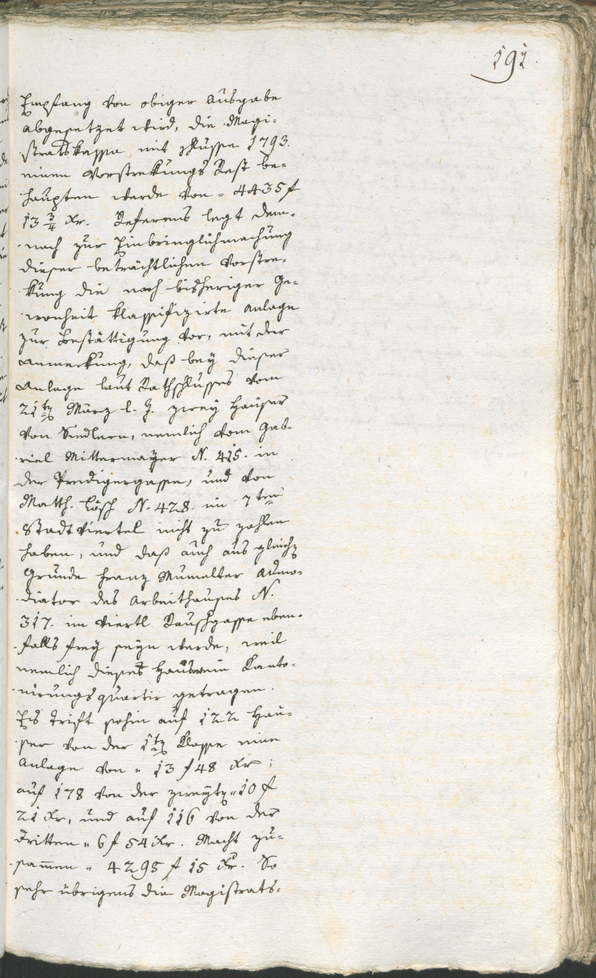 191.
Empfang von obiger Ausgabe
abgesetzet wird, die Magi-
stratskassa mit Schlusse 1793.
einen Vorstrekungs Rest be-
haupten werde von - 4435 f
13 3/4 xr. Referens legt dem-
nach zur Einbringlichmachung
dieser beträchtlichen Vorstre-
kung die nach bisheriger Ge-
wonheit klassifizirte Anlage
zur Bestättigung vor, mit der
Anmerkung, daß bey dieser
Anlage laut Rathschlusses vom
21ten März l. J. zwey Häuser
von Sindlern, nemlich vom Gab-
riel Mittermayer N. 415. in
der Predigergasse, und von
Matth. Lösch N. 428. im 7ten
Stadtviertel nicht zu zahlen
haben, und daß auch aus gleichen
Gründe Franz Mumelter Admo-
diator des Arbeithauses N.
317. im Viertl Rauschgasse eben-
falls frey seyn werde, weil
nemlich dieses Haus ein Kanto-
nirungsquartir getragen.
Es trift sohin auf 122 Häu-
ser von der 1ten Classe eine
Anlage von " 13 f 48 xr;
auf 178 von der zweyten " 10 f
21 xr, und auf 116 von der
dritten " 6 f 54 xr. Macht zu-
sammen " 4295 f 15 xr. So
sehr übrigens die Magistrats-